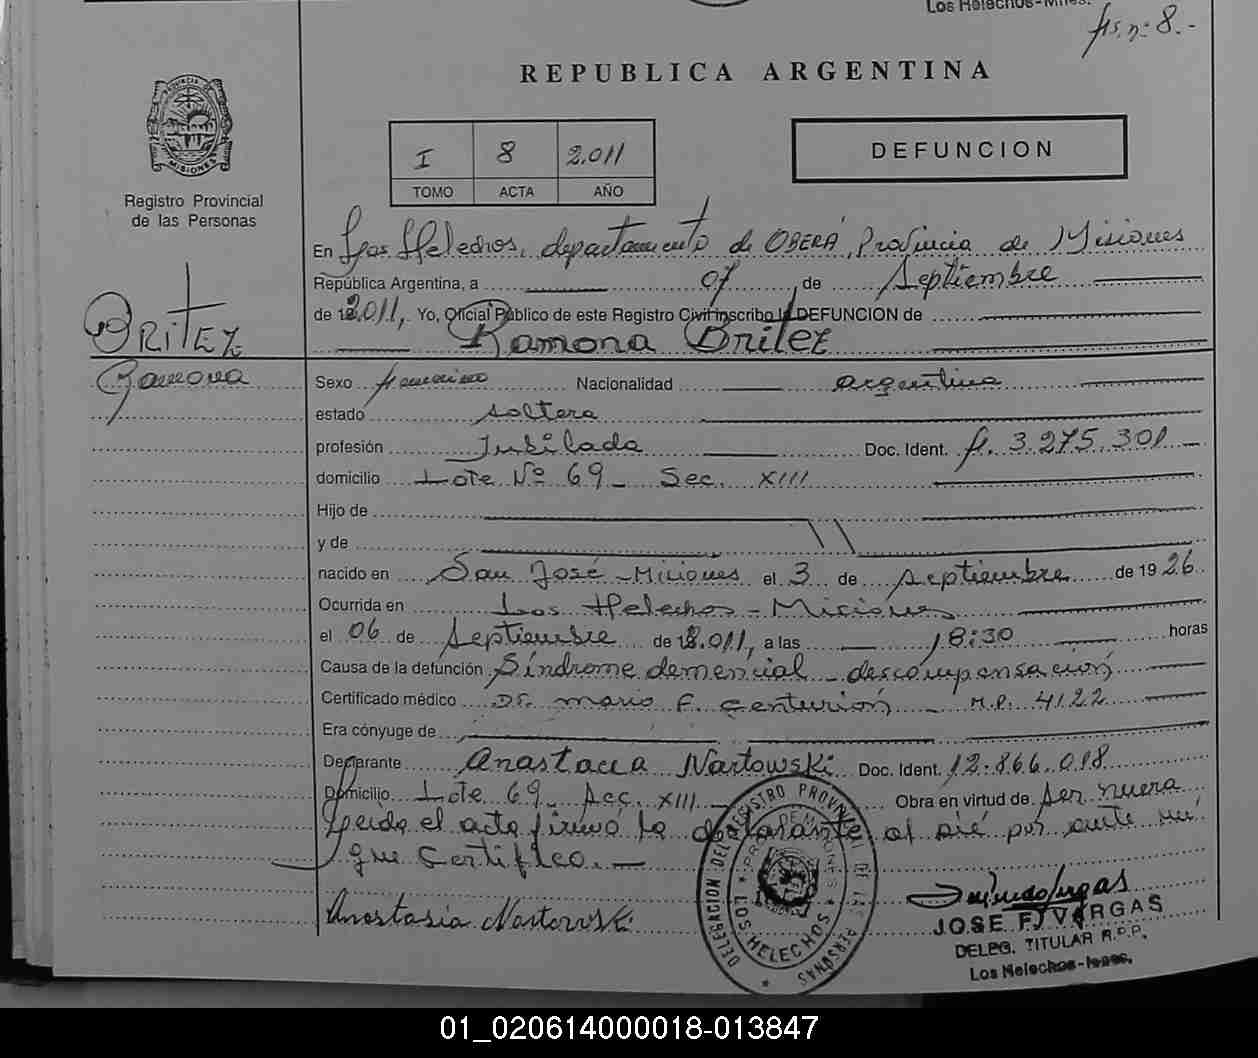 Los Helechos-Mnes.
fs. nº 8.-
REPUBLICA ARGENTINA
I 8 2.011
TOMO ACTA AÑO
DEFUNCION
PROVINCIA DE MISIONES
Registro Provincial
de las Personas
En Los Helechos, departamento de OBERÁ, Provincia de Misiones
República Argentina, a 07 de Septiembre
de 2.011, Yo, Oficial Público de este Registro Civil inscribo la DEFUNCION de
Ramona Britez
BRITEZ
Ramona
Sexo femenino Nacionalidad argentina
estado soltera
profesión Jubilada Doc. Ident. f. 3.275.301
domicilio Lote Nº 69 - Sec. XIII
Hijo de
y de
nacido en San José - Misiones el 3 de septiembre de 1926
Ocurrida en Los Helechos - Misiones
el 06 de Septiembre de 2.011, a las 18:30 horas
Causa de la defunción Síndrome demencial - descompensación
Certificado médico Dr. Mario F. Centurión - M.P. 4122
Era cónyuge de
Declarante Anastacia Nartowski Doc. Ident. 12.866.018
Domicilio Lote 69 - Secc. XIII - Obra en virtud de ser nuera
Leída el acta firmó la declarante al pié por ante mí
que certifico.
Anastasia Nartowski
DELEGACION DEL REGISTRO PROVINCIAL DE LAS PERSONAS
PROV. DE MISIONES
LOS HELECHOS
JOSE F. VARGAS
DELEG. TITULAR R.P.P.
Los Helechos-Mnes.
01_020614000018-013847